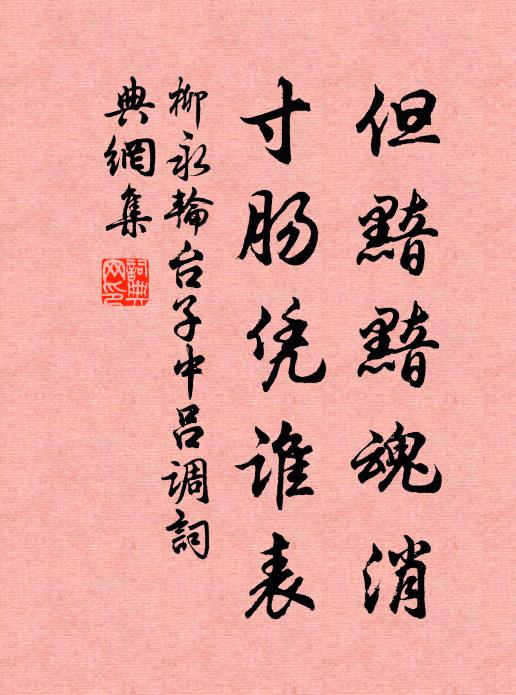 但黯黯魂消
寸肠凭谁表
柳永轮台子中吕调词
典網集
詞典网印